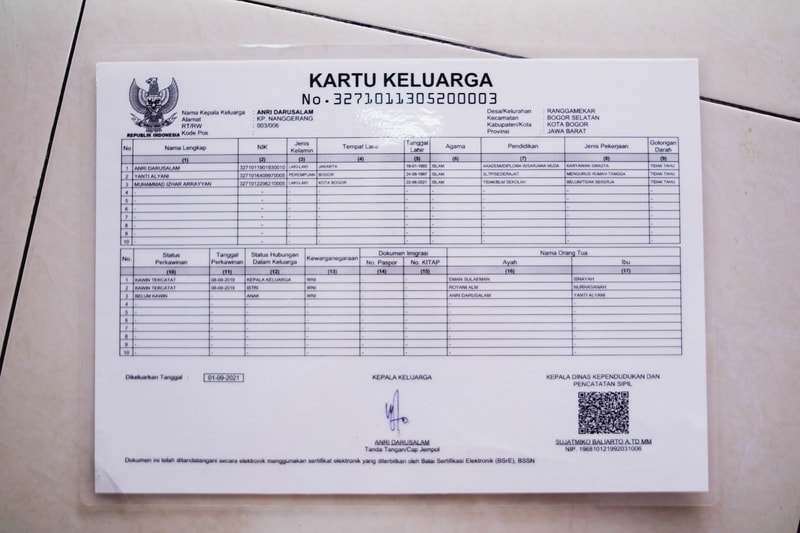 KARTU KELUARGA
No. 3271011305200003
REPUBLIK INDONESIA
Nama Kepala Keluarga : ANRI DARUSALAM
Alamat : KP. NANGGERANG
RT/RW : 003/006
Kode Pos :
Desa/Kelurahan : RANGGAMEKAR
Kecamatan : BOGOR SELATAN
Kabupaten/Kota : KOTA BOGOR
Provinsi : JAWA BARAT
No Nama Lengkap NIK Jenis Kelamin Tempat Tanggal Lahir Agama Pendidikan Jenis Pekerjaan Golongan Darah
(1) (2) (3) (4) (5) (6) (7) (8) (9)
1 ANRI DARUSALAM LAKI-LAKI JAKARTA ISLAM KARYAWAN SWASTA TIDAK TAHU
2 YANTI ALYANI PEREMPUAN BOGOR ISLAM SLTP/SEDERAJAT MENGURUS RUMAH TANGGA TIDAK TAHU
3 MUHAMMAD IZHAR ARRAYYAN LAKI-LAKI KOTA BOGOR ISLAM TIDAK/BLM SEKOLAH BELUM/TIDAK BEKERJA TIDAK TAHU
4 - - - - - - - -
5 - - - - - - - -
6 - - - - - - - -
7 - - - - - - - -
8 - - - - - - - -
9 - - - - - - - -
10 - - - - - - - -
No. Status Perkawinan Tanggal Perkawinan Status Hubungan Dalam Keluarga Kewarganegaraan Dokumen Imigrasi Nama Orang Tua
No. Paspor No. KITAP Ayah Ibu
(10) (11) (12) (13) (14) (15) (16) (17)
1 KAWIN TERCATAT 08-09-2019 KEPALA KELUARGA WNI EMAN SULAEMAN ISNAYAH
2 KAWIN TERCATAT 08-09-2019 ISTRI WNI ROYANI ALM NURHASANAH
3 BELUM KAWIN - ANAK WNI ANRI DARUSALAM YANTI ALYANI
4 - - - - - - - -
5 - - - - - - - -
6 - - - - - - - -
7 - - - - - - - -
8 - - - - - - - -
9 - - - - - - - -
10 - - - - - - - -
Dikeluarkan Tanggal : 01-09-2021
KEPALA KELUARGA
ANRI DARUSALAM
Tanda Tangan/Cap Jempol
KEPALA DINAS KEPENDUDUKAN DAN
PENCATATAN SIPIL
SUJATMIKO BALIARTO A.TD MM
NIP. 196810121992031006
Dokumen ini telah ditandatangani secara elektronik menggunakan sertifikat elektronik yang diterbitkan oleh Balai Sertifikasi Elektronik (BSrE), BSSN